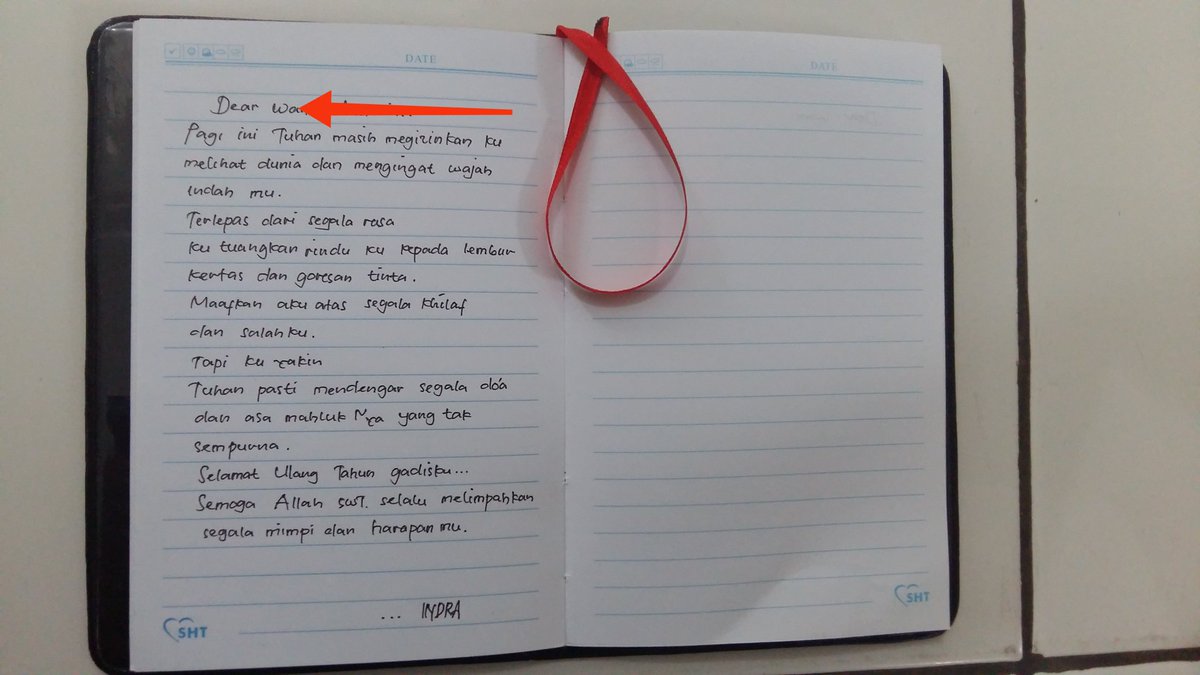 DATE
DATE
Dear
Pagi ini Tuhan masih megizinkan ku
melihat dunia dan mengingat wajah
indah mu.
Terlepas dari segala rasa
ku tuangkan rindu ku kepada lembur
kertas dan goresan tinta.
Maafkan aku atas segala khilaf
dan salahku.
Tapi ku yakin
Tuhan pasti mendengar segala do'a
dan asa mahluk Nya yang tak
sempurna.
Selamat Ulang Tahun gadisku...
Semoga Allah swt. selalu melimpahkan
segala mimpi dan harapan mu.
... INDRA
SHT
SHT